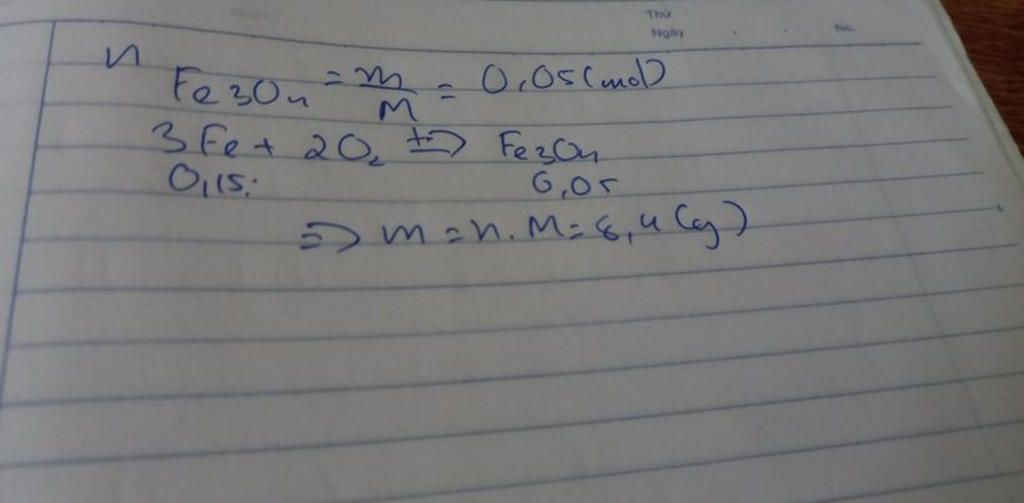 Thứ
Ngày No.
n Fe3O4 = m/M = 0,05 (mol)
3Fe + 2O2 t°=> Fe3O4
0,15. 0,05
=> m = n.M = 8,4 (g)